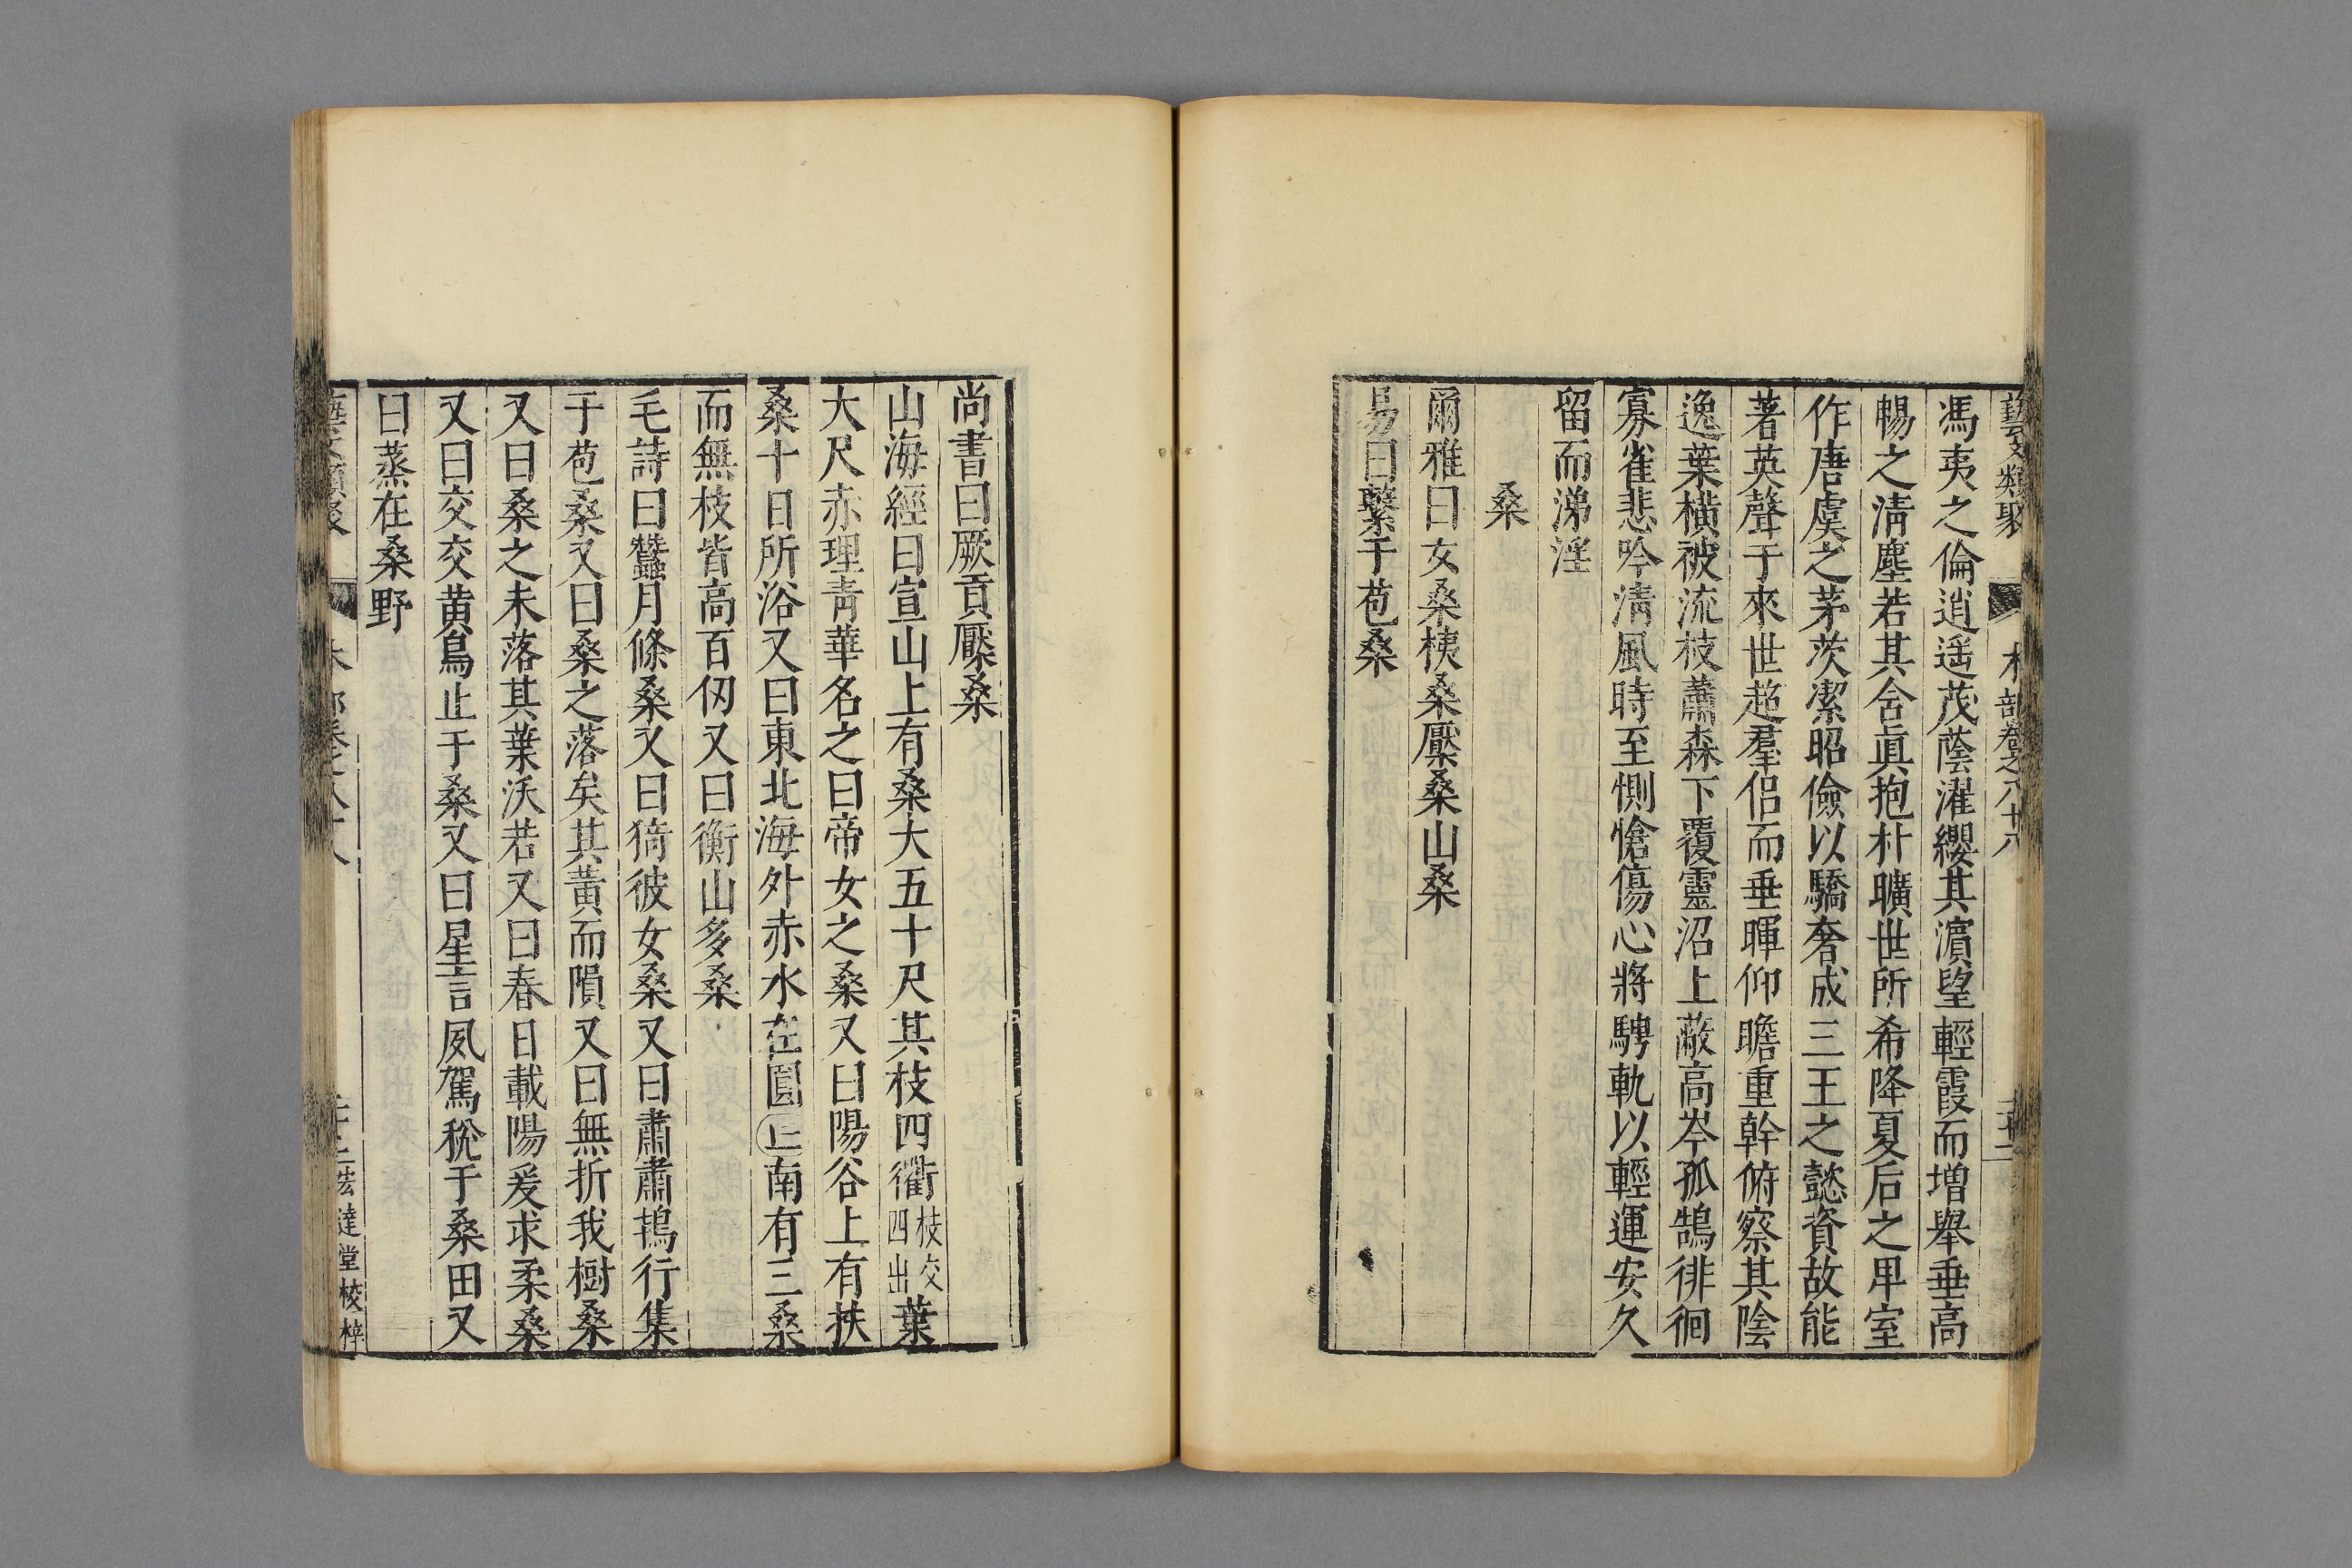 藝文類聚 木部卷之八十八
馮夷之倫逍遥茂蔭濯纓其濵望輕霞而増舉垂高
暢之清塵若其含眞抱朴曠世所希降夏后之甲室
作唐虞之茅茨潔昭儉以驕奢成三王之懿資故能
著英聲于來世超羣侶而垂暉仰瞻重幹俯察其陰
逸葉横被流枝蕭森下覆靈沼上蔽高岑孤鵠徘徊
寡雀悲吟清風時至惻愴傷心將騁軌以輕運安久
留而涕淫
桑
爾雅曰女桑桋桑檿桑山桑
易曰繫于苞桑
尚書曰厥貢檿桑
山海經曰宣山上有桑大五十尺其枝四衢枝交四出葉
大尺赤理青華名之曰帝女之桑又曰陽谷上有扶
桑十日所浴又曰東北海外赤水在圓㊤南有三桑
而無枝皆高百仞又曰衡山多桑
毛詩曰蠶月條桑又曰猗彼女桑又曰肅肅鴇行集
于苞桑又曰桑之落矣其黃而隕又曰無折我樹桑
又曰桑之未落其葉沃若又曰春日載陽爰求柔桑
又曰交交黄鳥止于桑又曰星言夙駕稅于桑田又
曰蒸在桑野
藝文類聚 木部卷之八十八 堂校梓